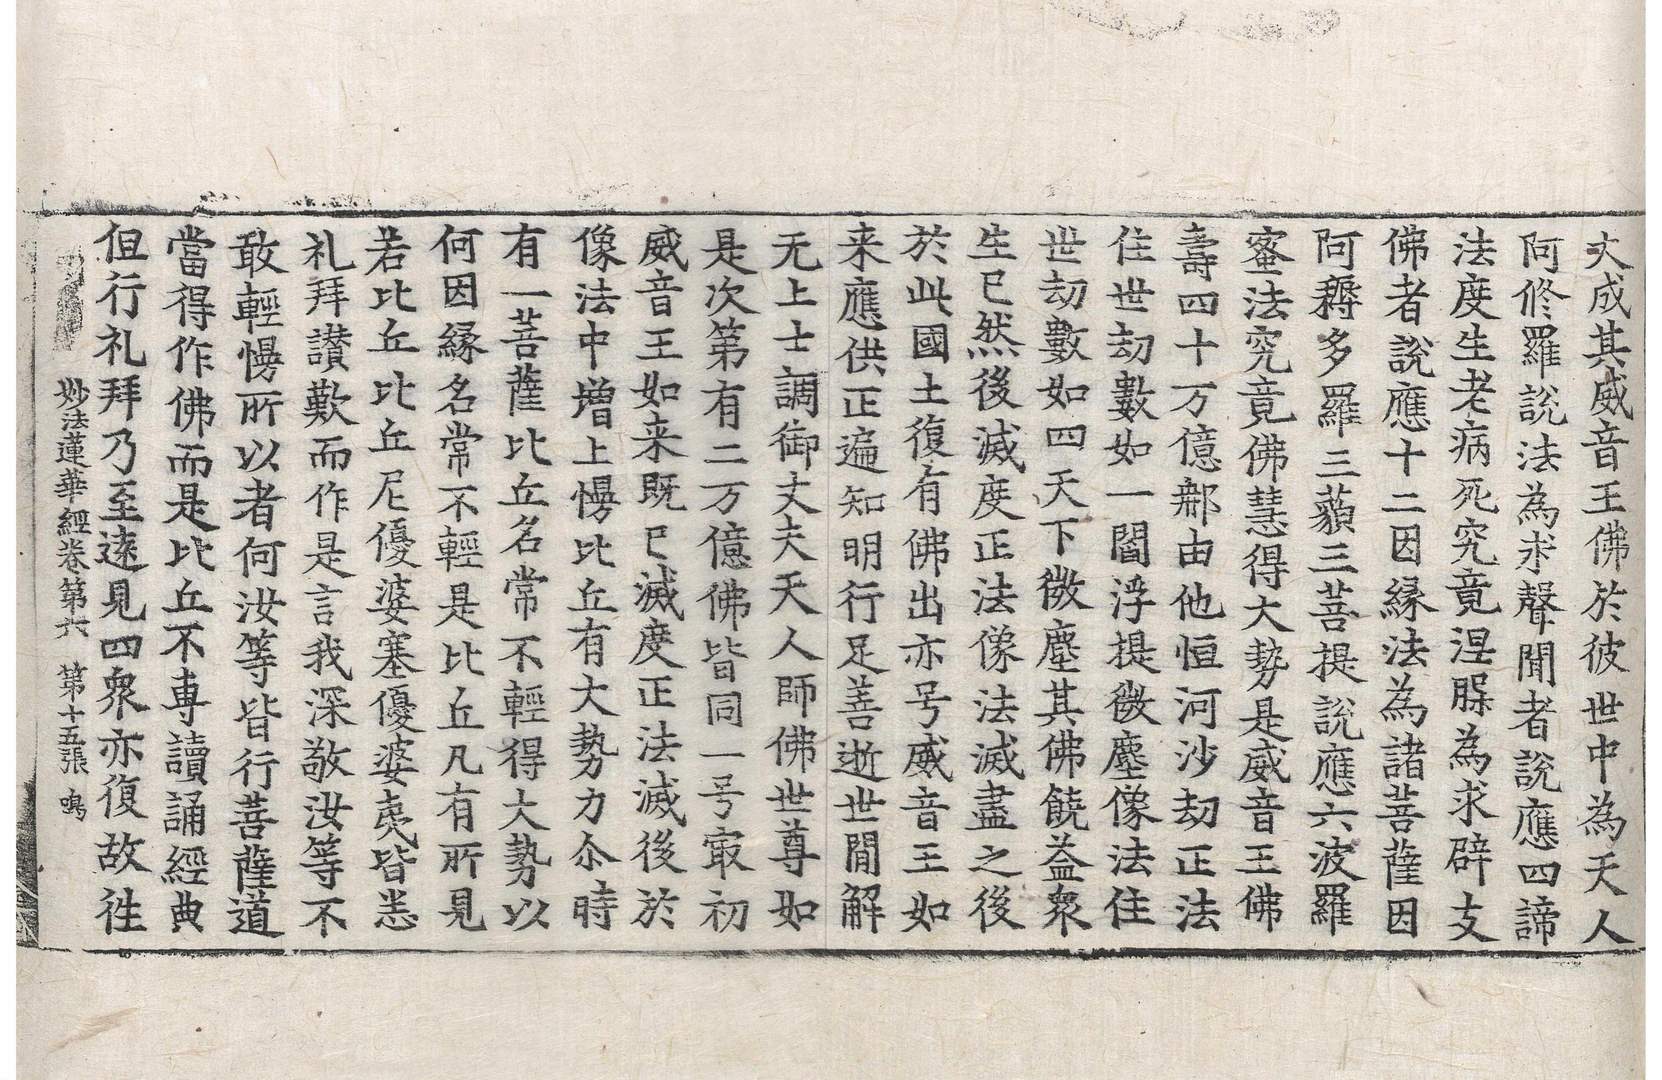 大成其威音王佛於彼世中為天人
阿修羅說法為求聲聞者說應四諦
法度生老病死究竟涅槃為求辟支
佛者說應十二因緣法為諸菩薩因
阿耨多羅三藐三菩提說應六波羅
蜜法究竟佛慧得大勢是威音王佛
壽四十万億那由他恒河沙劫正法
住世劫數如一閻浮提微塵像法住
世劫數如四天下微塵其佛饒益衆
生已然後滅度正法像法滅盡之後
於此國土復有佛出亦号威音王如
来應供正遍知明行足善逝世閒解
无上士調御丈夫天人師佛世尊如
是次第有二万億佛皆同一号㝡初
威音王如来既已滅度正法滅後於
像法中增上慢比丘有大勢力尒時
有一菩薩比丘名常不輕得大勢以
何因緣名常不輕是比丘凡有所見
若比丘比丘尼優婆塞優婆夷皆悉
礼拜讃歎而作是言我深敬汝等不
敢輕慢所以者何汝等皆行菩薩道
當得作佛而是比丘不專讀誦經典
但行礼拜乃至遠見四衆亦復故往
妙法蓮華經卷第六 第十五張 鳴